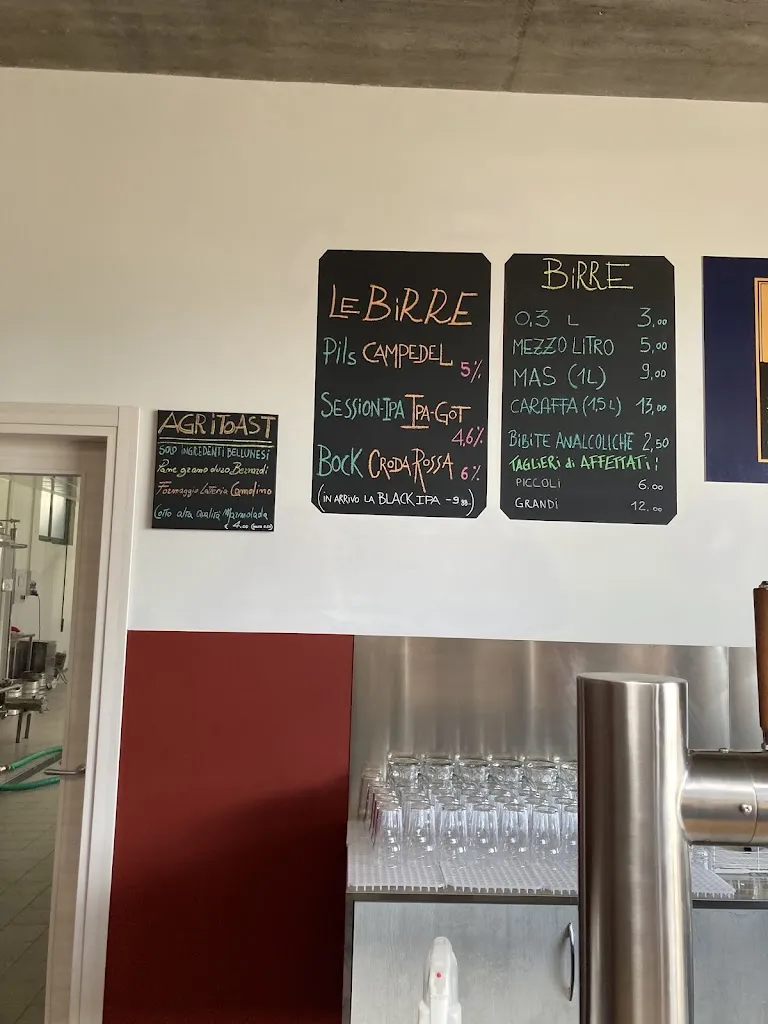 AGRITOAST
SOLO INGREDIENTI BELLUNESI
Pane grano duro Bernardi
Formaggio Latteria Camolino
Cotto alta qualità Marmolada
€ 4.00
LE BIRRE
Pils CAMPEDEL 5%
SESSION-IPA IPA-GOT
4,6%
BOCK CRODA ROSSA 6%
(IN ARRIVO LA BLACK IPA
BIRRE
0,3 L 3,00
MEZZO LITRO 5,00
MAS (1L) 9,00
CARAFFA (1.5L) 13,00
BIBITE ANALCOLICHE 2,50
TAGLIERI di AFFETTATI!
PICCOLI 6.00
GRANDI 12.00